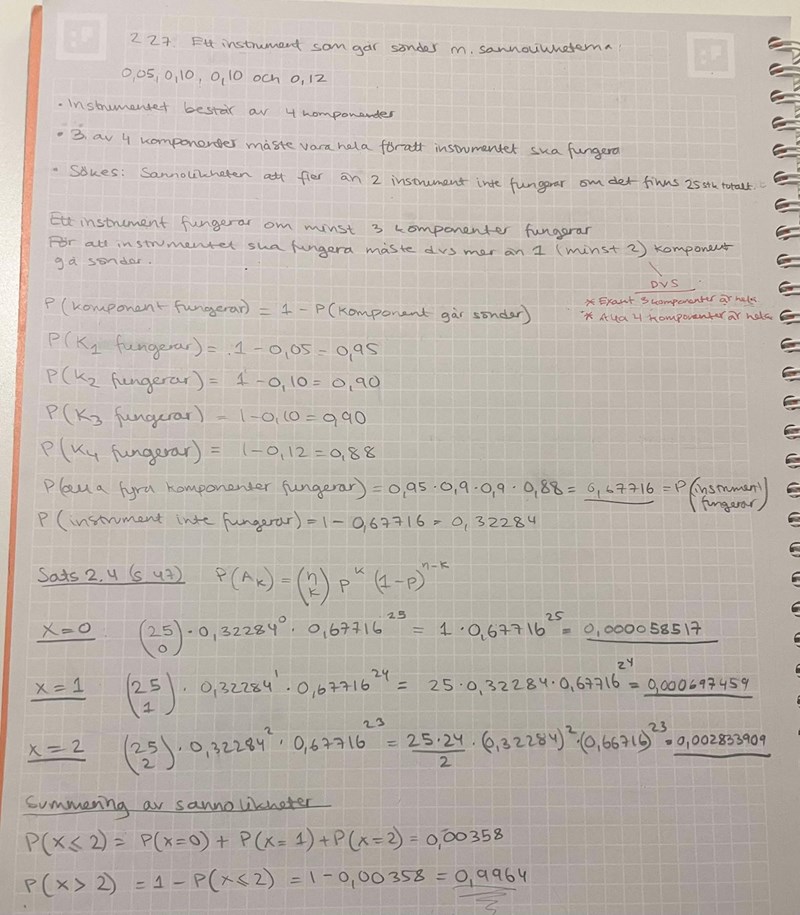 2.27. Ett instrument som går sönder m. sannolikheterna:
0,05, 0,10, 0,10 och 0,12
• Instrumentet består av 4 komponenter
• 3 av 4 komponenter måste vara hela för att instrumentet ska fungera
• Sökes: Sannolikheten att fler än 2 instrument inte fungerar om det finns 25 stk totalt.
Ett instrument fungerar om minst 3 komponenter fungerar
För att instrumentet ska fungera måste dvs mer än 1 (minst 2) komponent
gå sönder.
DVS
* Exakt 3 komponenter är hela
* Alla 4 komponenter är hela
P(komponent fungerar) = 1 - P(komponent går sönder)
P(K₁ fungerar) = 1 - 0,05 = 0,95
P(K₂ fungerar) = 1 - 0,10 = 0,90
P(K₃ fungerar) = 1 - 0,10 = 0,90
P(K₄ fungerar) = 1 - 0,12 = 0,88
P(alla fyra komponenter fungerar) = 0,95 · 0,9 · 0,9 · 0,88 = 0,67716 = P(instrument fungerar)
P(instrument inte fungerar) = 1 - 0,67716 = 0,32284
Sats 2.4 (s 47) P(Aₖ) = (n k) pᵏ (1-p)ⁿ⁻ᵏ
x=0 (25 0) · 0,32284⁰ · 0,67716²⁵ = 1 · 0,67716²⁵ = 0,000058517
x=1 (25 1) · 0,32284¹ · 0,67716²⁴ = 25 · 0,32284 · 0,67716²⁴ = 0,000697459
x=2 (25 2) · 0,32284² · 0,67716²³ = 25·24/2 · (0,32284)² · (0,66716)²³ = 0,002833909
Summering av sannolikheter
P(x≤2) = P(x=0) + P(x=1) + P(x=2) = 0,00358
P(x>2) = 1 - P(x≤2) = 1 - 0,00358 = 0,9964